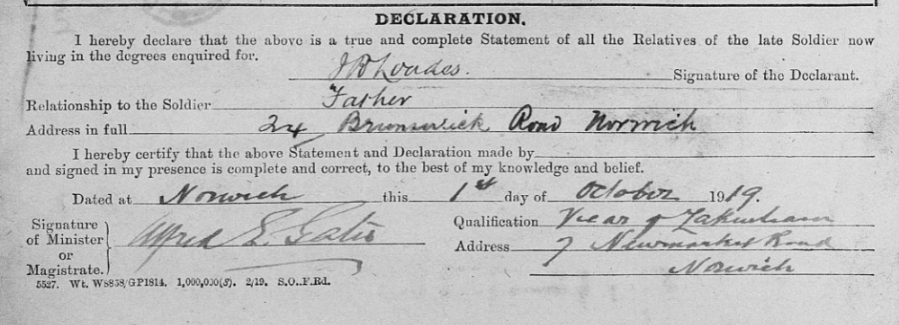 DECLARATION.
I hereby declare that the above is a true and complete Statement of all the Relatives of the late Soldier now
living in the degrees enquired for.
J Loades. Signature of the Declarant.
Relationship to the Soldier Father
Address in full 24 Brunswick Road Norwich
I hereby certify that the above Statement and Declaration made by
and signed in my presence is complete and correct, to the best of my knowledge and belief.
Dated at Norwich this 1st day of October 1919.
Signature of Minister or Magistrate. Alfred E. Gates
Qualification Vicar of Fakenham
Address 7 Newmarket Road
Norwich
5527. Wt. W8858/GP1814. 1,000,000(S). 2/19. S.O.,F.Rd.